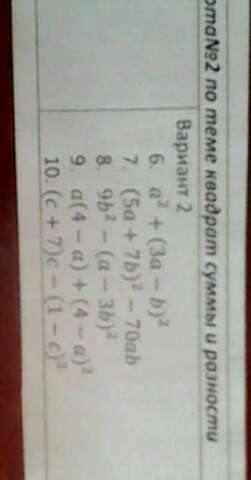 ота№2 по теме квадрат суммы и разности
Вариант 2
6. a² + (3a − b)²
7. (5a + 7b)² − 70ab
8. 9b² − (a − 3b)²
9. a(4 − a) + (4 − a)²
10. (c + 7)c − (1 − c)²